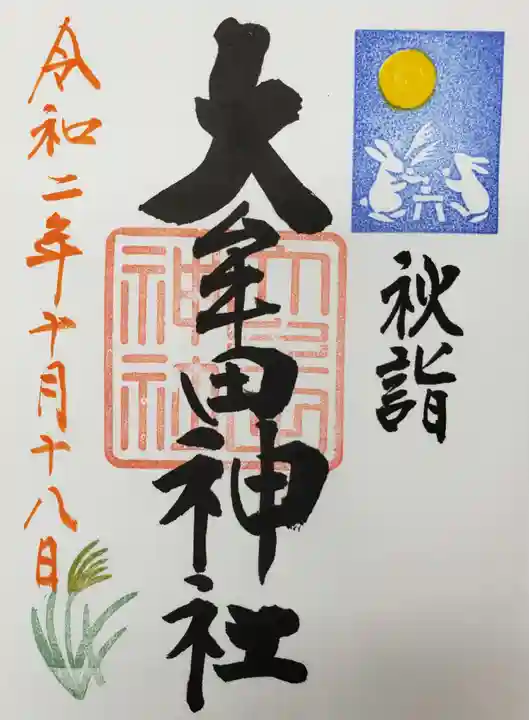 秋詣
大牟田神社
令和二年十月十八日